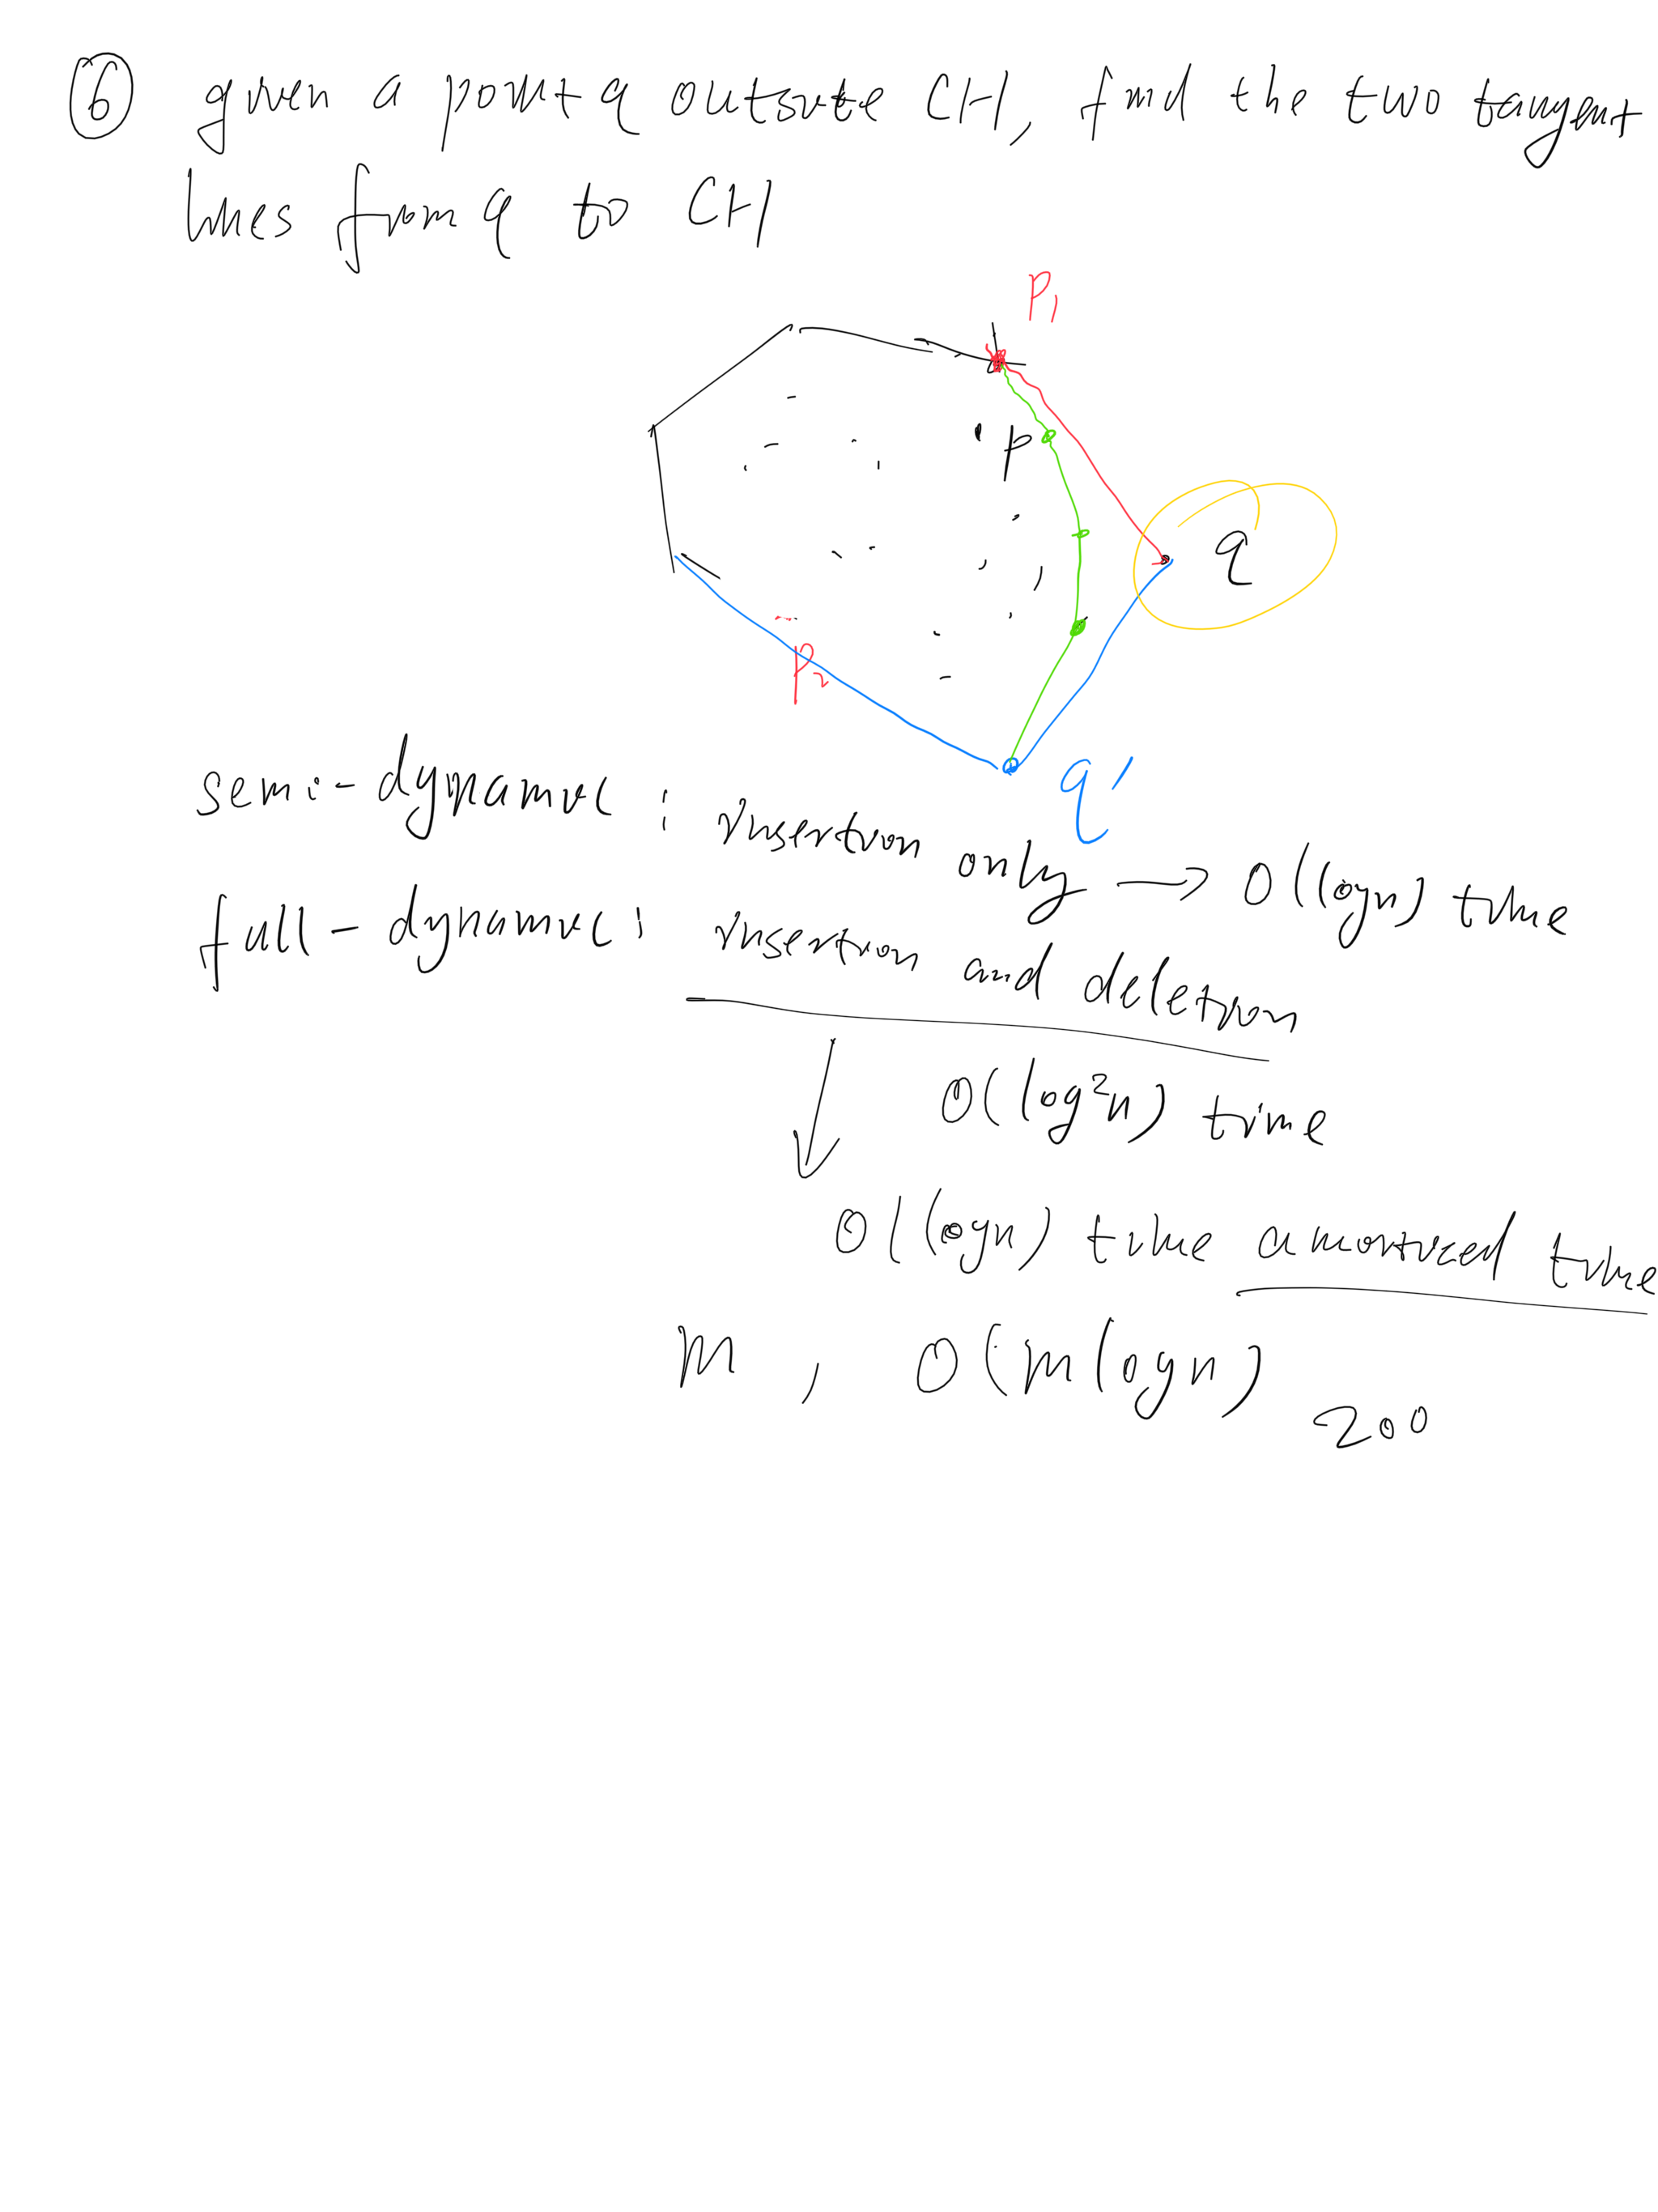 ⑥ given a point q outside CH, find the two tangent
lines from q to CH
P₁
p
q
P₂
q'
semi-dynamic : insertion only → O(logn) time
full-dynamic : insertion and deletion
O(log²n) time
O(logn) time amortized time
m , O(mlogn)
200